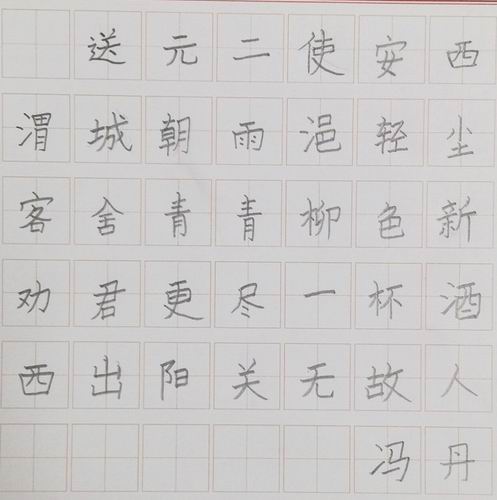 送元二使安西
渭城朝雨浥轻尘
客舍青青柳色新
劝君更尽一杯酒
西出阳关无故人
冯丹